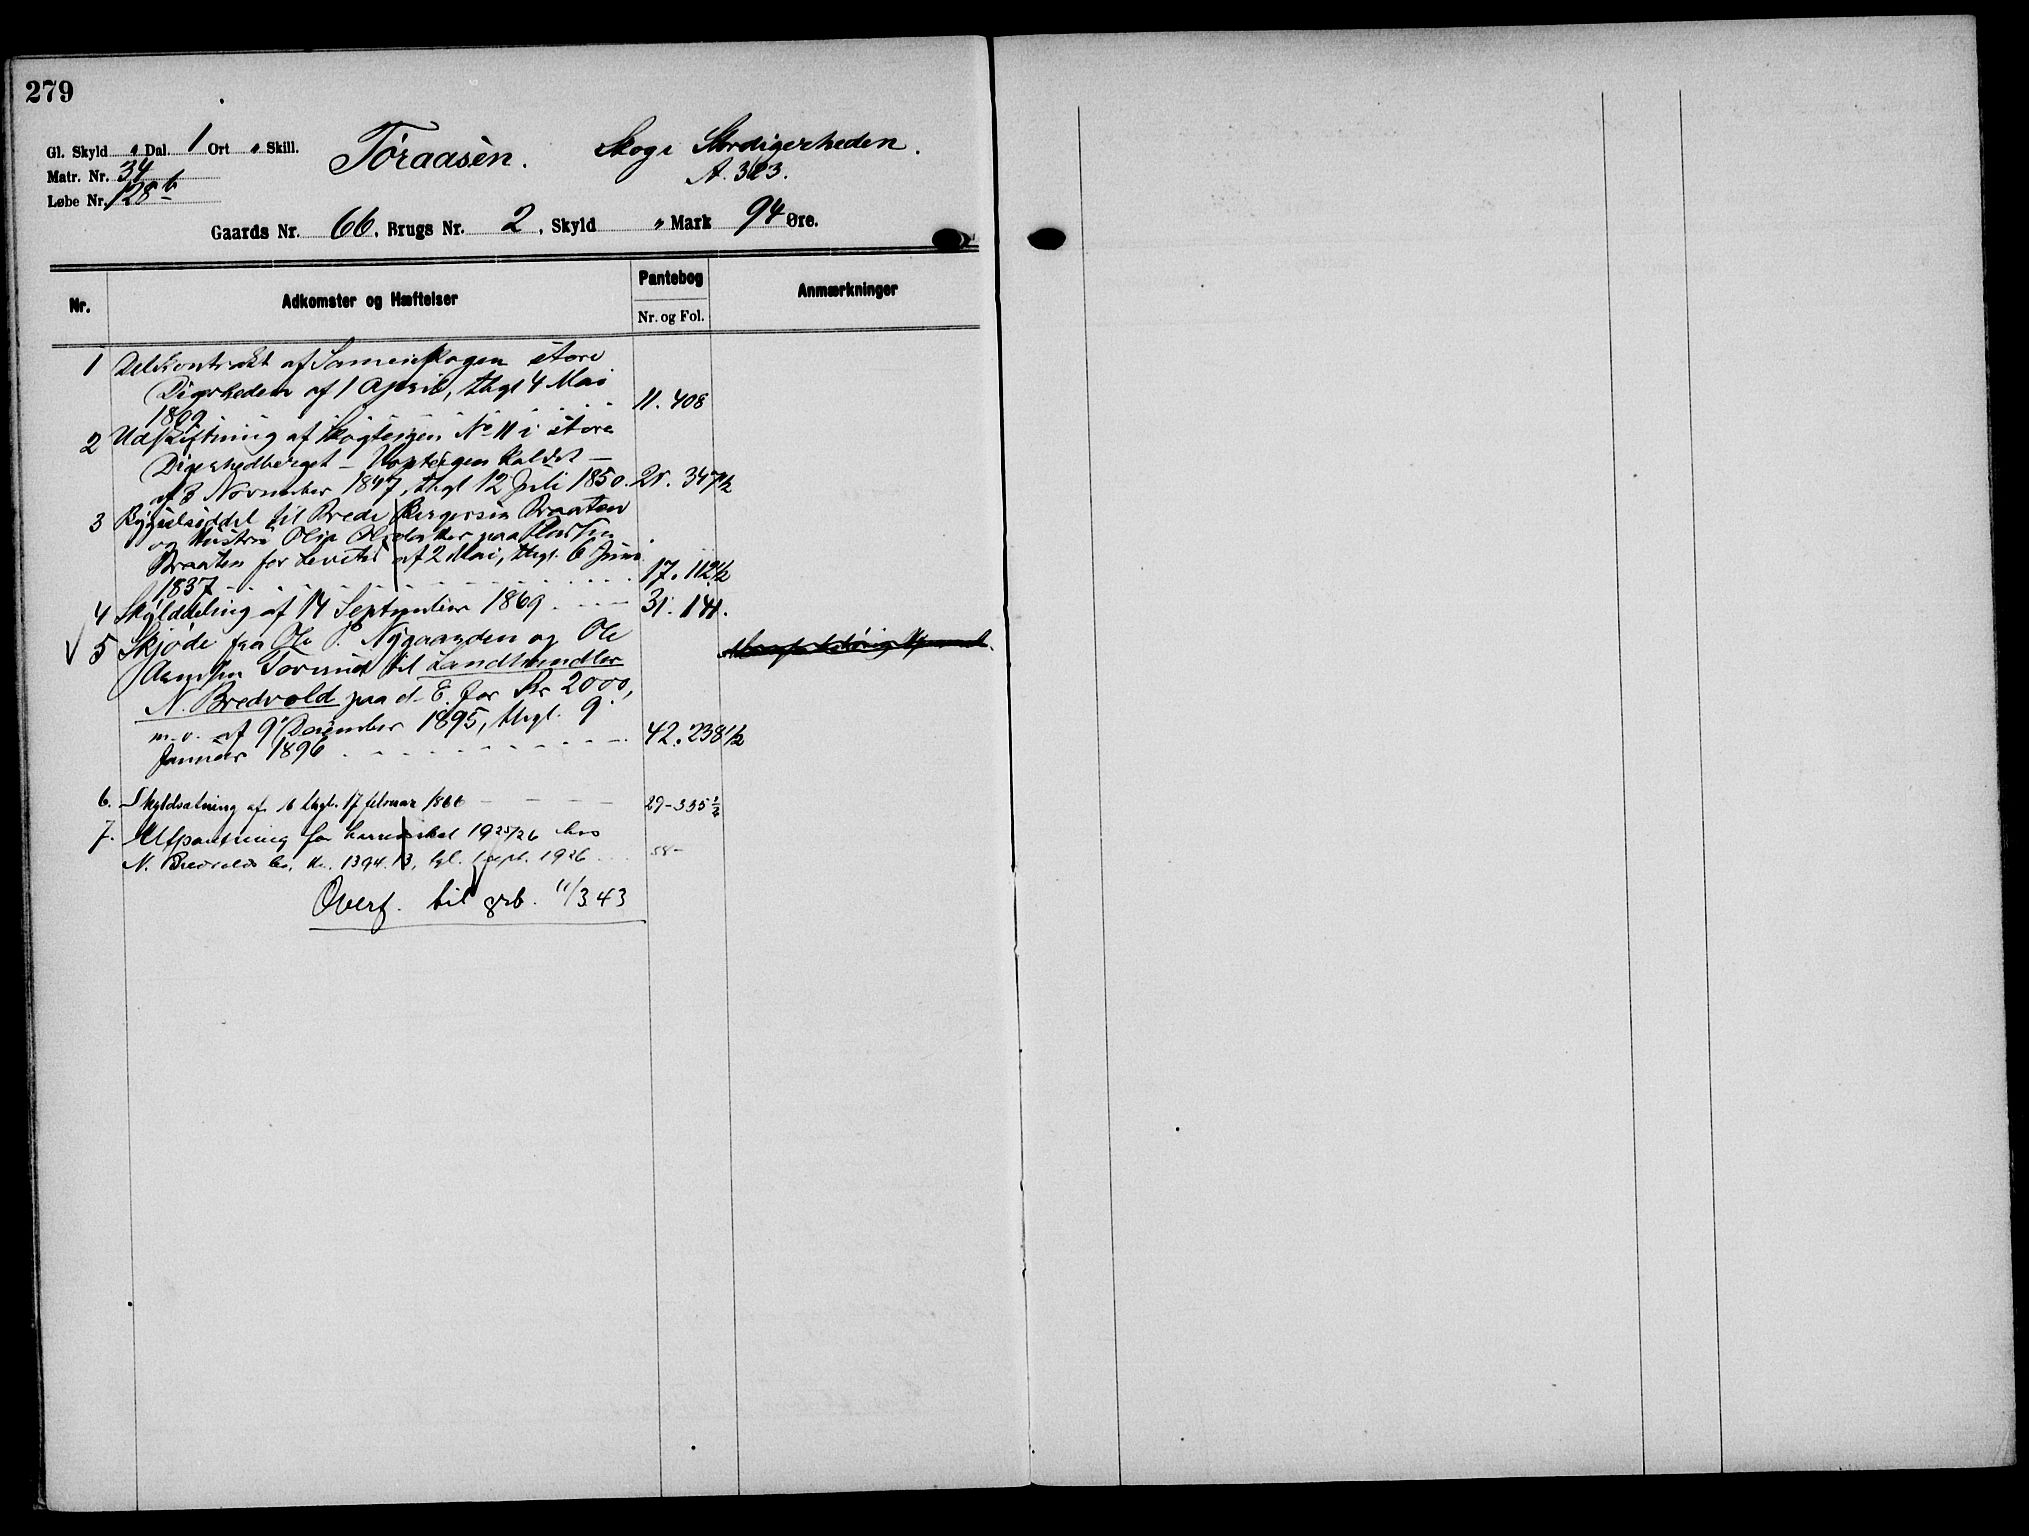 279
Gl. Skyld " Dal. 1 Ort " Skill.
Tøraasen. Skog i Stordigerheden.
Matr. Nr. 34
A. 363.
Løbe Nr. 128b
Gaards Nr. 66, Brugs Nr. 2, Skyld " Mark 94 Øre.
Nr. Adkomster og Hæftelser Pantebog Anmærkninger
Nr. og Fol.
1 Delekontrakt af Sameieskogen store
Digerheden af 1 April, thgl 4 Mai
1809 11. 408
2 Udskiftning af Skogteigen No 11 i store
Digerhedberget - kaldet -
af 3 November 1847, thgl 12 Juli 1850. 21. 347 1/2
3 Bygselseddel til Brede Bergersen Braaten
og Hustru paa
Braaten for Levetid af 2 Mai, thgl. 6 Juni
1837 17. 112 1/2
4 Skylddeling af 14 September 1869 31. 141.
5 Skjøde fra Ole P. Nygaarden og Ole
Torud til Landhandler
N. Bredvold paa d. E. for Kr 2000,
m. v. af 9 December 1895, thgl. 9
Januar 1896 42. 238 1/2
6. Skyldsætning af 16 thgl. 17 februar 1866 29-335 1/2
7. Utpantning for herredsskat 1925/26 hos
N. Bredvolds bo, kr. 1394.13, tgl. 1 sept. 1926 58-
Overf. til grb. 11/3 43